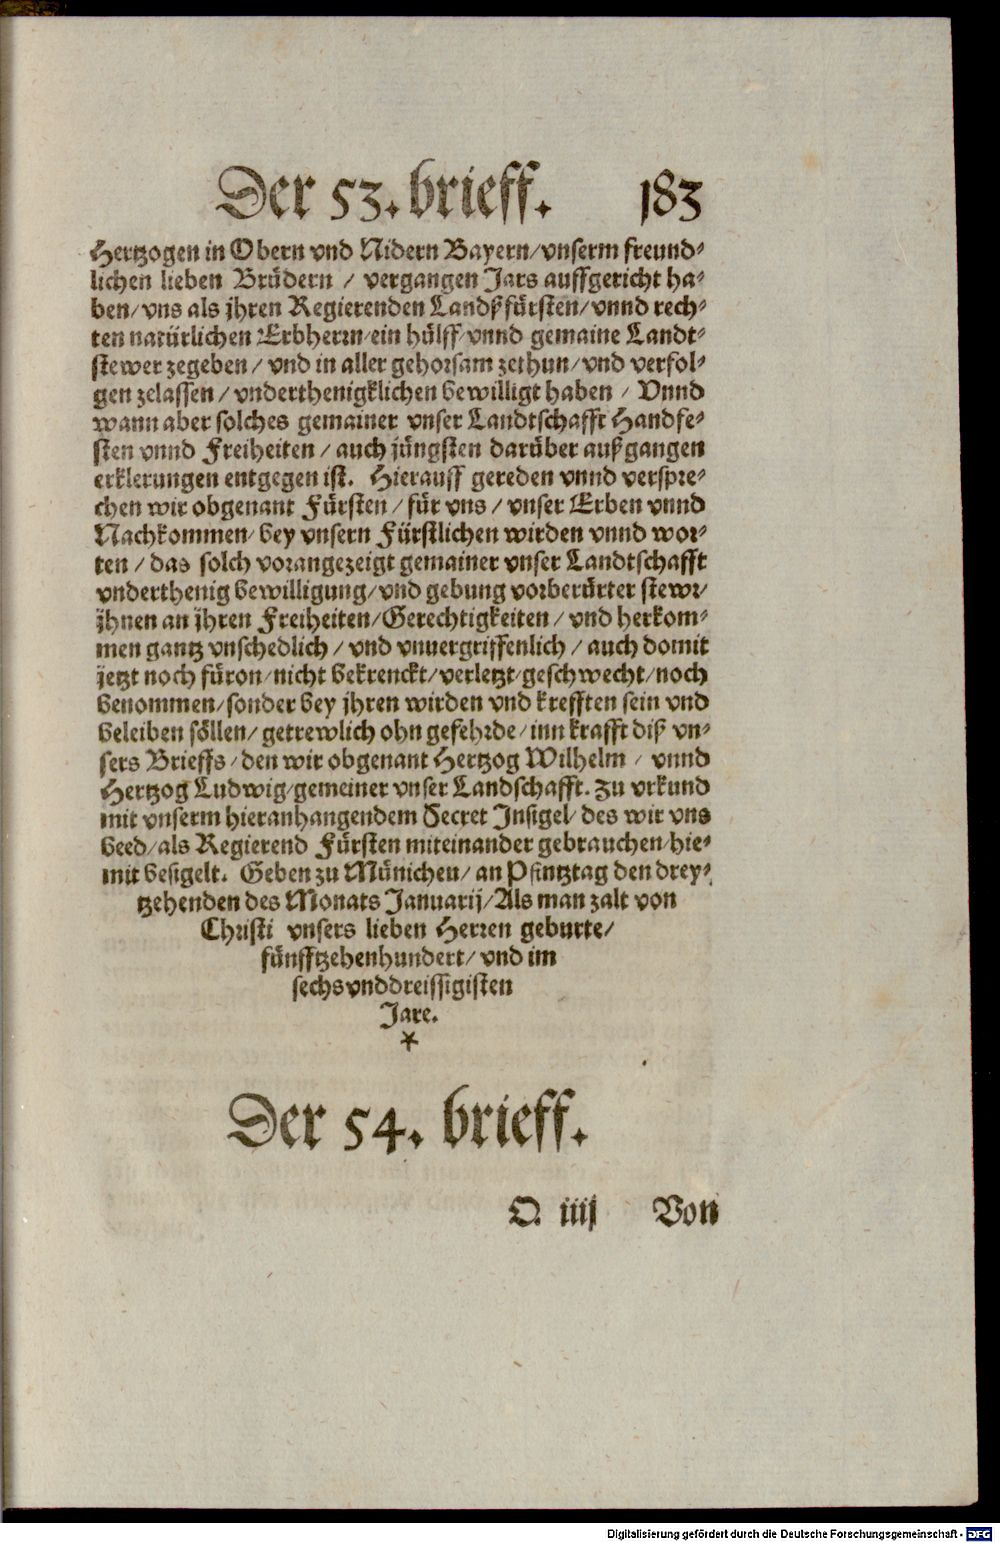 Der 53. brieff. 183
Hertzogen in Obern vnd Nidern Bayern/vnserm freund⸗
lichen lieben Brüdern / vergangen Jars auffgericht ha⸗
ben/vns als jhren Regierenden Landßfürsten/vnnd rech⸗
ten natürlichen Erbherrn/ein hülff/vnnd gemaine Landt⸗
stewer zegeben/ vnd in aller gehorsam zethun/vnd verfol⸗
gen zelassen/vnderthenigklichen bewilligt haben / Vnnd
wann aber solches gemainer vnser Landtschafft Handfe⸗
sten vnnd Freiheiten / auch jüngsten darüber außgangen
erklerungen entgegen ist. Hierauff gereden vnnd verspre⸗
chen wir obgenant Fürsten / für vns / vnser Erben vnnd
Nachkommen/ bey vnsern Fürstlichen wirden vnnd wor⸗
ten / das solch vorangezeigt gemainer vnser Landtschafft
vnderthenig bewilligung/vnd gebung vorberürter stewr/
jhnen an jhren Freiheiten/Gerechtigkeiten / vnd herkom⸗
men gantz vnschedlich / vnd vnuergriffenlich / auch domit
jetzt noch füron/nicht bekrenckt/verletzt/geschwecht/noch
benommen/sonder bey jhren wirden vnd krefften sein vnd
beleiben söllen/ getrewlich ohn gefehrde/inn krafft diß vn⸗
sers Brieffs/den wir obgenant Hertzog Wilhelm / vnnd
Hertzog Ludwig/gemeiner vnser Landschafft. Zu vrkund
mit vnserm hieranhangendem Secret Insigel/ des wir vns
beed/als Regierend Fürsten miteinander gebrauchen/hie⸗
mit besigelt. Geben zu Münichen/ an Pfintztag den drey⸗
tzehenden des Monats Januarij/Als man zalt von
Christi vnsers lieben Herren geburte/
fünfftzehenhundert/ vnd im
sechsvnddreissigisten
Jare.
*
Der 54. brieff.
Q iiij Von
Digitalisierung gefördert durch die Deutsche Forschungsgemeinschaft - DFG